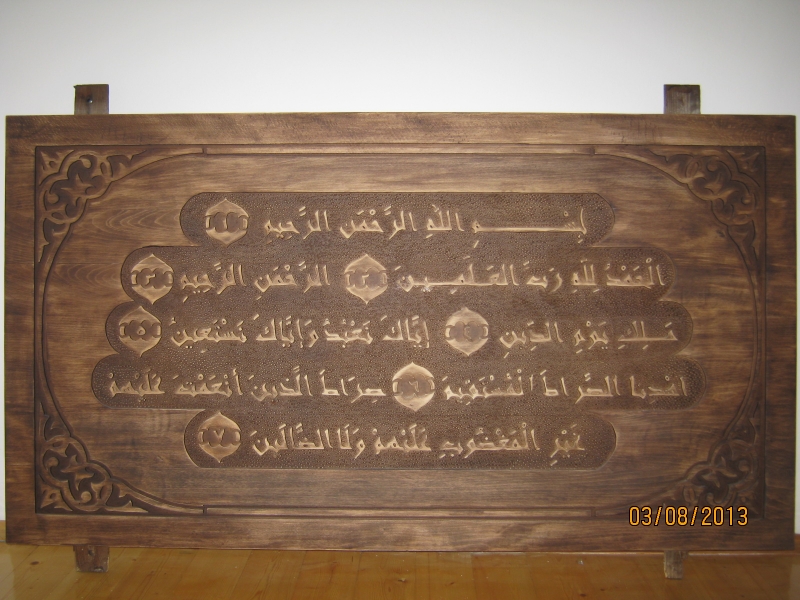 بِسْمِ اللهِ الرَّحْمَنِ الرَّحِيمِ ١
الْحَمْدُ لِلَّهِ رَبِّ الْعَلَمِينَ ٢ الرَّحْمَنِ الرَّحِيمِ ٣
مَلِكِ يَوْمِ الدِّينِ ٤ إِيَّاكَ نَعْبُدُ وَإِيَّاكَ نَسْتَعِينُ ٥
اهْدِنَا الصِّرَاطَ الْمُسْتَقِيمَ ٦ صِرَاطَ الَّذِينَ أَنْعَمْتَ عَلَيْهِمْ
غَيْرِ الْمَغْضُوبِ عَلَيْهِمْ وَلَا الضَّالِّينَ ٧
03/08/2013